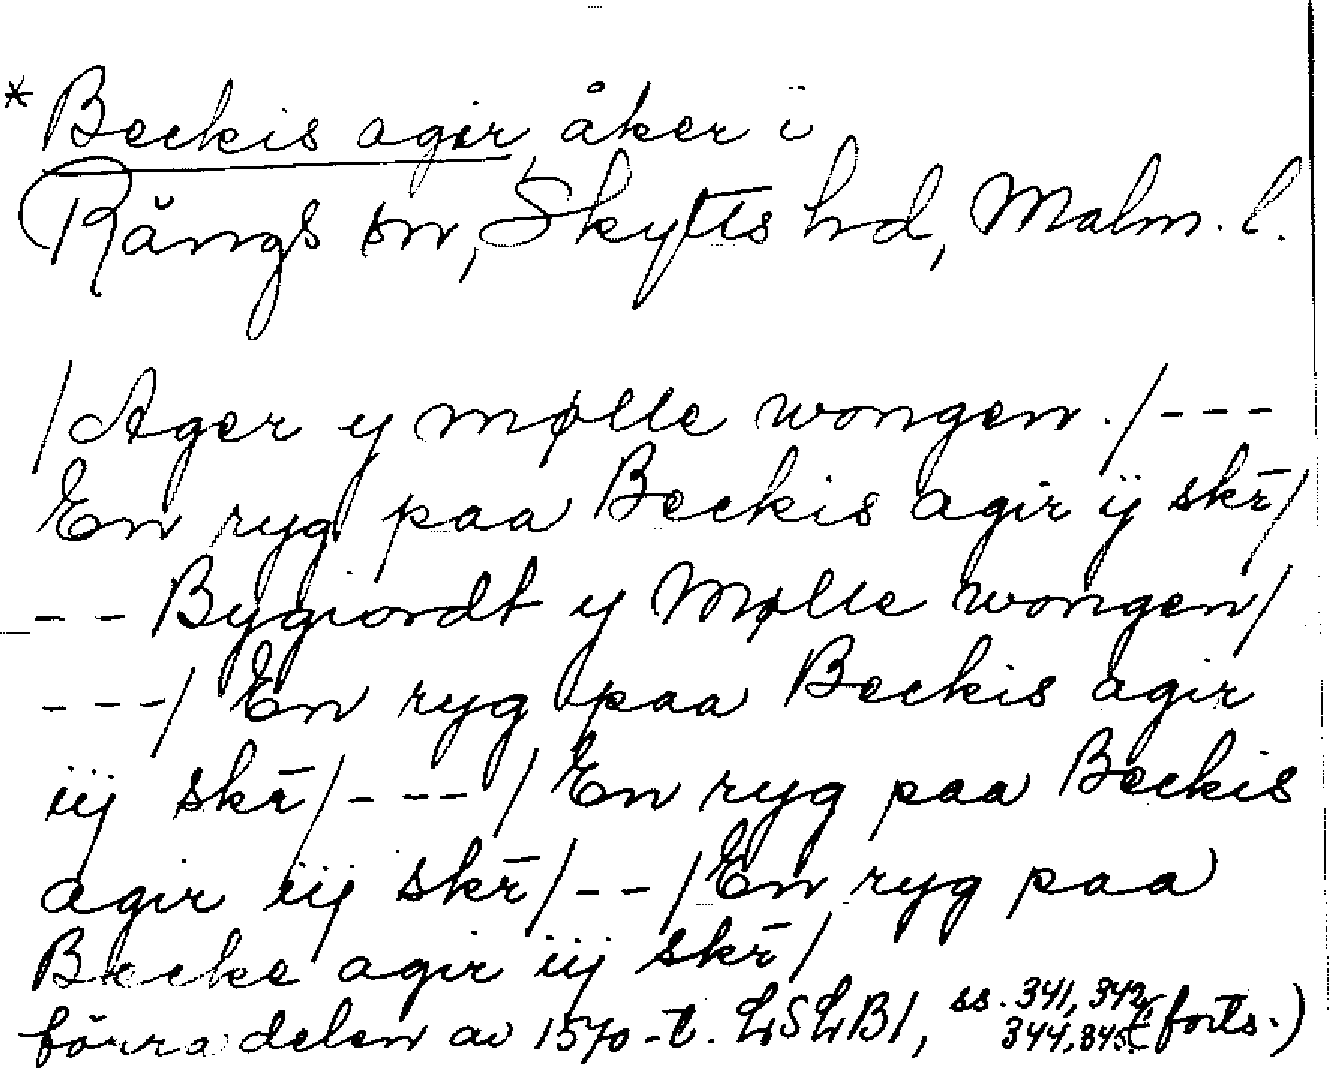 * Beckis agir, åker i
Rångs sn, Skytts hd, Malm. l.
/Ager y mølle wongen./---
En ryg paa Beckis agir ÿ skr̄/
-- Bygiordt y Mølle wongen/
---/ En ryg paa Beckis agir
iij skr̄/---/ En ryg paa Beckis
agir iij skr̄/--/En ryg paa
Becke agir iij skr̄/
förra delen av 1570-t. LSLB1, ss. 341, 342,
344, 345 (forts.)